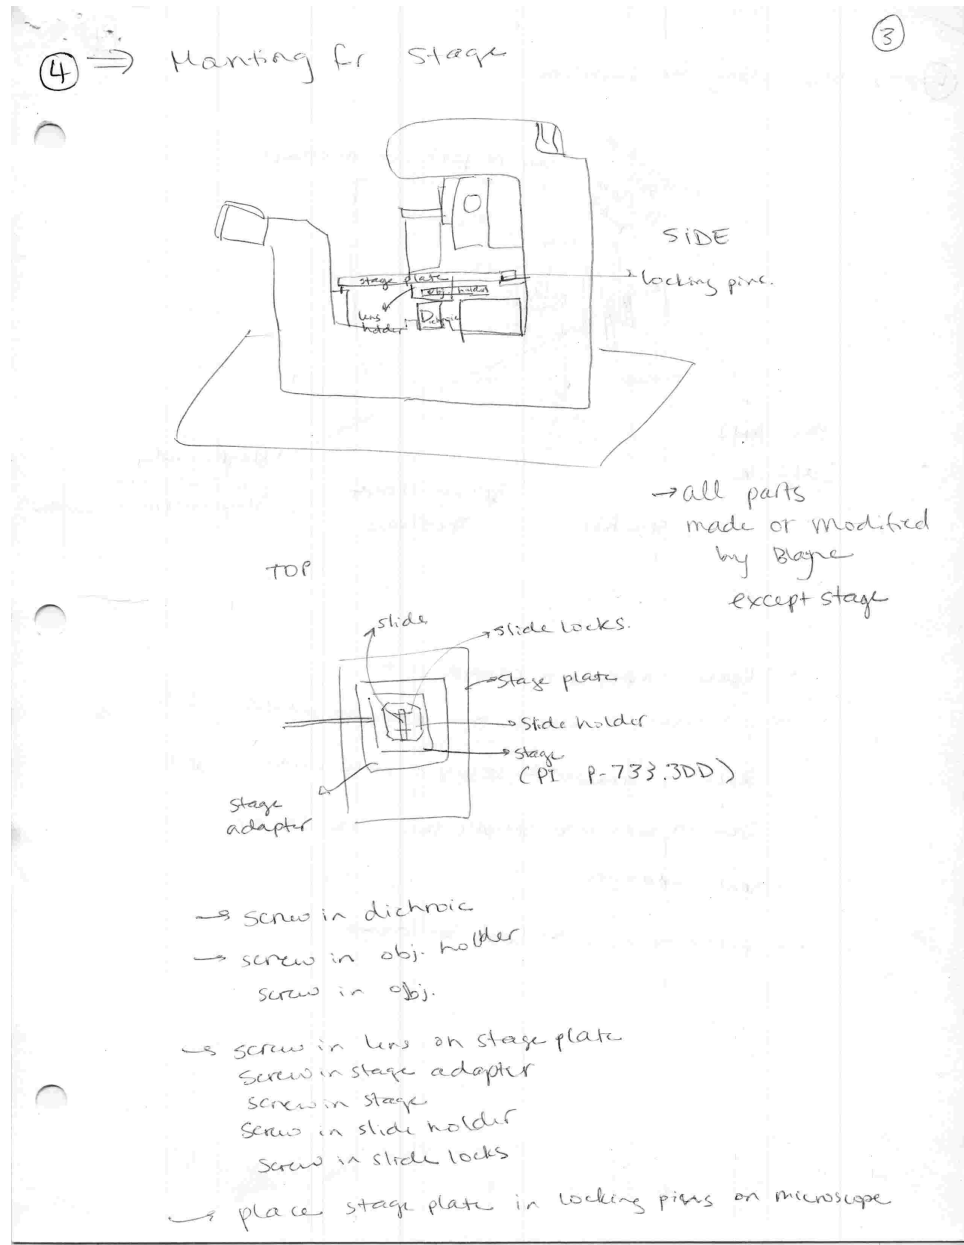 3
4 ⇒ Mounting for Stage
SIDE
locking pins.
stage plate
obj holder
lens
holder
Dichroic
→ all parts
made or modified
by Blayne
except stage
TOP
slide
slide locks.
stage plate
slide holder
stage
(PI P-733.3DD)
stage
adapter
→ screw in dichroic
→ screw in obj. holder
screw in obj.
→ screw in lens on stage plate
screw in stage adapter
screw in stage
screw in slide holder
screw in slide locks
→ place stage plate in locking pins on microscope